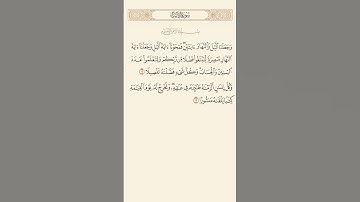 وَجَعَلْنَا ٱلَّيْلَ وَٱلنَّهَارَ ءَايَتَيْنِ فَمَحَوْنَآ ءَايَةَ ٱلَّيْلِ وَجَعَلْنَآ ءَايَةَ
ٱلنَّهَارِ مُبْصِرَةً لِّتَبْتَغُوا۟ فَضْلًا مِّن رَّبِّكُمْ وَلِتَعْلَمُوا۟ عَدَدَ
ٱلسِّنِينَ وَٱلْحِسَابَ وَكُلَّ شَىْءٍ فَصَّلْنَٰهُ تَفْصِيلًا
وَكُلَّ إِنسَٰنٍ أَلْزَمْنَٰهُ طَٰٓئِرَهُۥ فِى عُنُقِهِۦ وَنُخْرِجُ لَهُۥ يَوْمَ ٱلْقِيَٰمَةِ
كِتَٰبًا يَلْقَىٰهُ مَنشُورًا